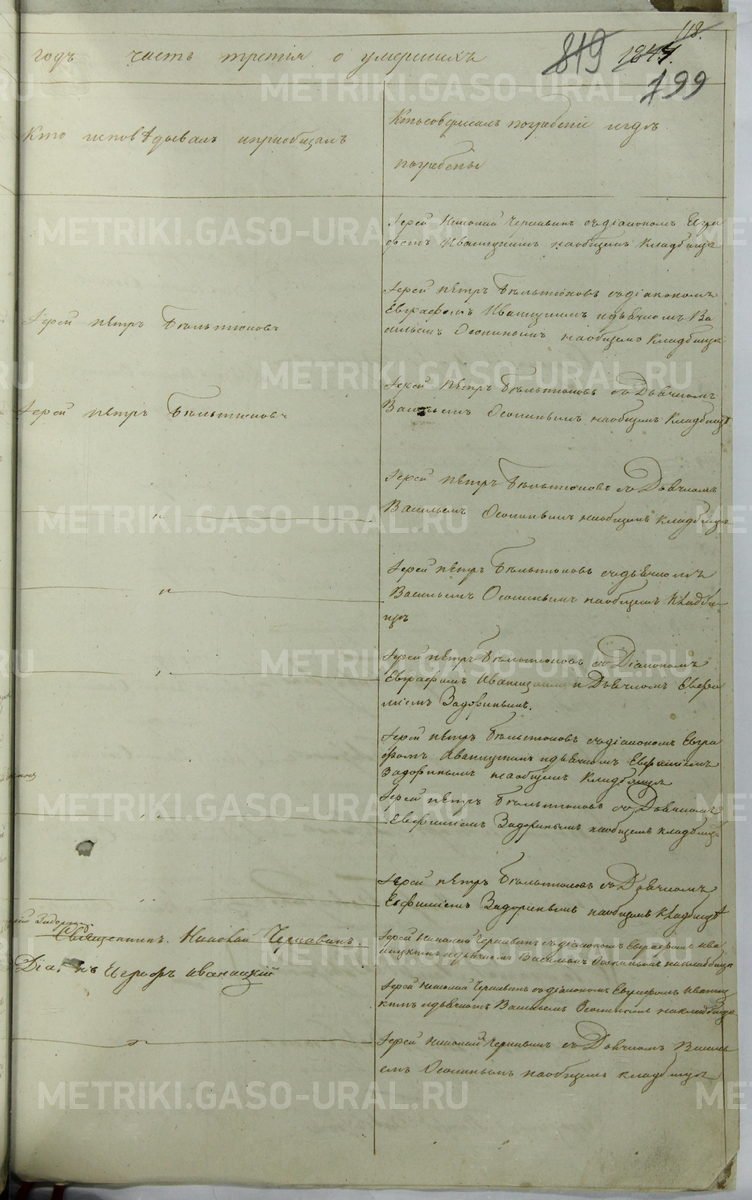 118.
годъ часть третія о умершихъ
819 1844.
199
Кто исповѣдывалъ и пріобщалъ
Кто совершалъ погребеніе и гдѣ
погребены
Іерей Николай Чернавинъ съ діакономъ Евгра
фомъ Иваницкимъ на общемъ кладбищѣ
Іерей Петръ Бѣльтюковъ
Іерей Петръ Бѣльтюковъ съ діакономъ
Евграфомъ Иваницкимъ и дьячкомъ Ва
сильемъ Осокинымъ на общемъ кладбищѣ
Іерей Петръ Бѣльтюковъ
Іерей Петръ Бѣльтюковъ съ Дьячкомъ
Васильемъ Осокинымъ на общемъ кладбищѣ
Іерей Петръ Бѣльтюковъ съ Дьячкомъ
Васильемъ Осокинымъ на общемъ кладбищѣ
Іерей Петръ Бѣльтюковъ съ дьячкомъ
Васильемъ Осокинымъ на общемъ кладби
щѣ
Іерей Петръ Бѣльтюковъ съ Діакономъ
Евграфомъ Иваницкимъ и Дьячкомъ Евфи
міемъ Задоринымъ.
Іерей Петръ Бѣльтюковъ съ діакономъ Евгра
фомъ Иваницкимъ и дьячкомъ Евфиміемъ
Задоринымъ на общемъ кладбищѣ
Іерей Петръ Бѣльтюковъ съ Дьячкомъ
Евфиміемъ Задоринымъ на общемъ кладбищѣ
Іерей Петръ Бѣльтюковъ съ Дьячкомъ
Евфиміемъ Задоринымъ на общемъ кладбищѣ
Священникъ Николай Чернавинъ.
Іерей Николай Чернавинъ съ діакономъ Евграфомъ Ива
ницкимъ и дьячкомъ Васильемъ Осокинымъ на кладбищѣ
Евграфъ Иваницкій
Іерей Николай Чернавинъ съ діакономъ Евграфомъ Иваниц
кимъ и дьячкомъ Васильемъ Осокинымъ на кладбищѣ
Іерей Николай Чернавинъ съ Дьячкомъ Василь
емъ Осокинымъ на общемъ кладбищѣ
METRIKI.GASO-URAL.RU